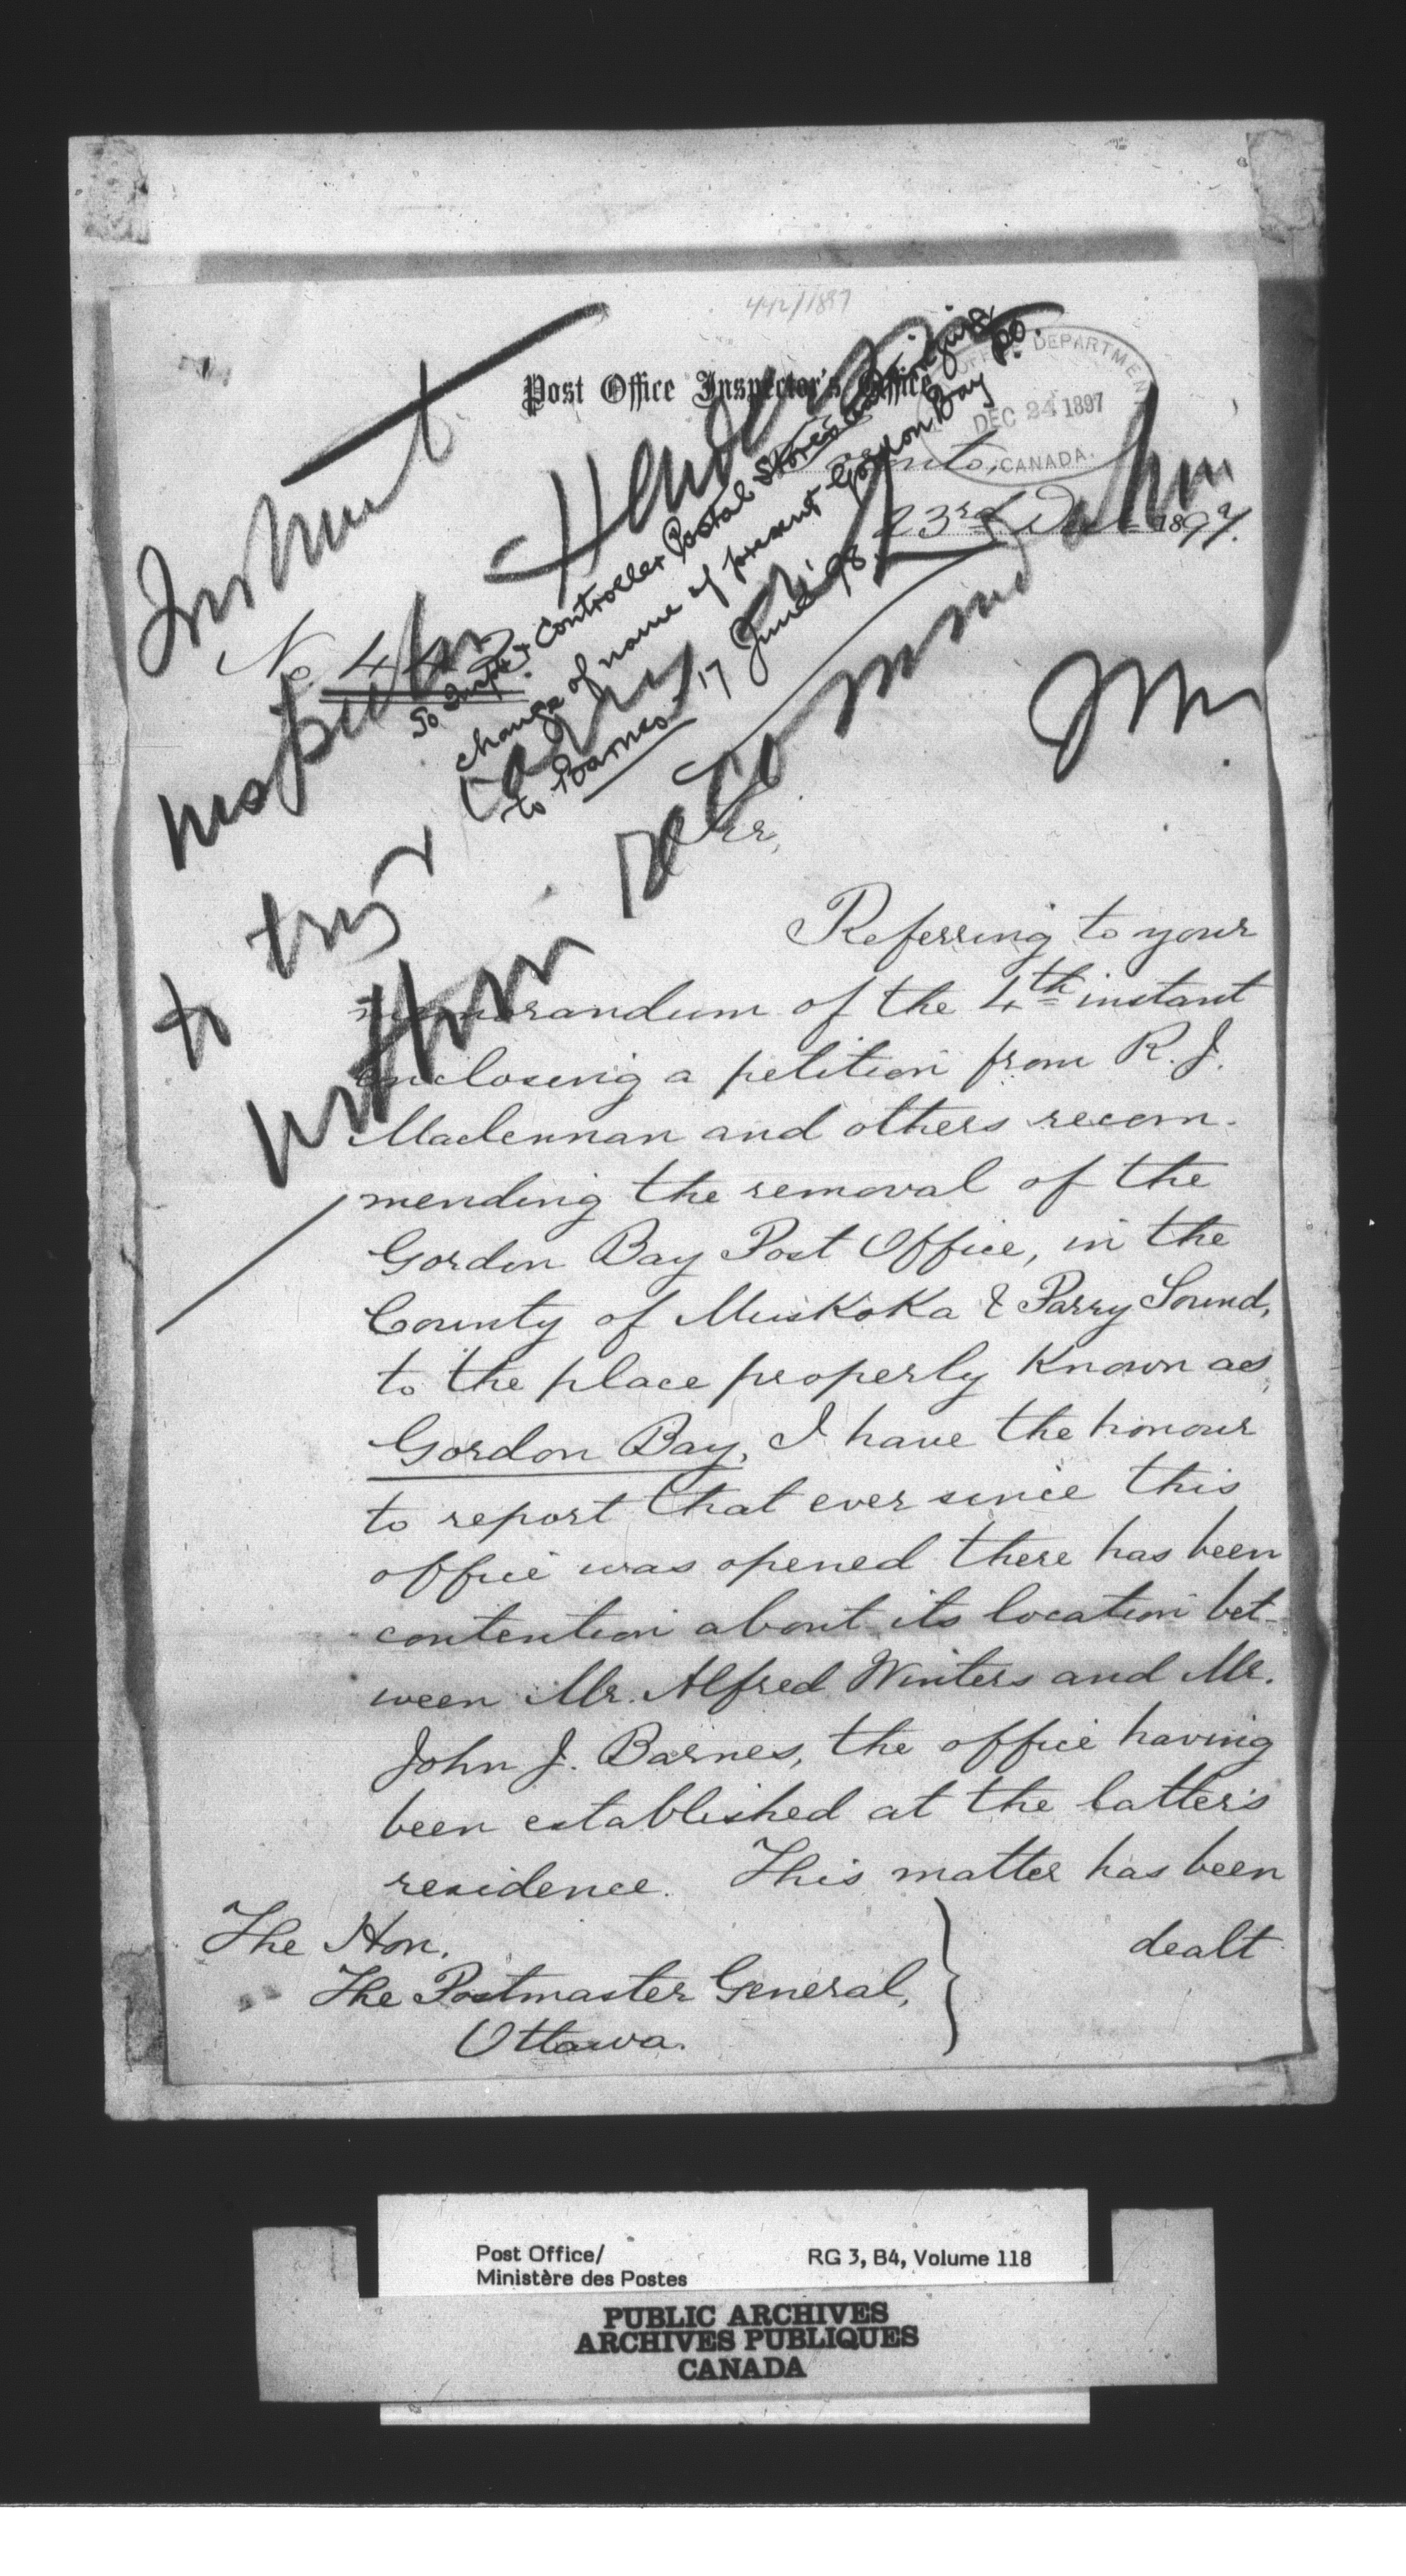 442/1897
Post Office Inspector's Office
OFFICE DEPARTMENT
DEC 24 1897
CANADA.
Toronto,
23rd Dec 1897.
Instruct
Inspector
to try
within
Henderson
recommendation
JMM
No. 442.
To Inspr & Controller Postal Stores
change of name of present Gordon Bay P.O.
to Barnes - 17 June 98.
Sir,
Referring to your
memorandum of the 4th instant
enclosing a petition from R. J.
Maclennan and others recom-
mending the removal of the
Gordon Bay Post Office, in the
County of Muskoka & Parry Sound,
to the place properly known as
Gordon Bay, I have the honour
to report that ever since this
office was opened there has been
contention about its location bet-
ween Mr. Alfred Winters and Mr.
John J. Barnes, the office having
been established at the latter's
residence. This matter has been
dealt
The Hon.
The Postmaster General,
Ottawa.
Post Office/
Ministère des Postes
RG 3, B4, Volume 118
PUBLIC ARCHIVES
ARCHIVES PUBLIQUES
CANADA